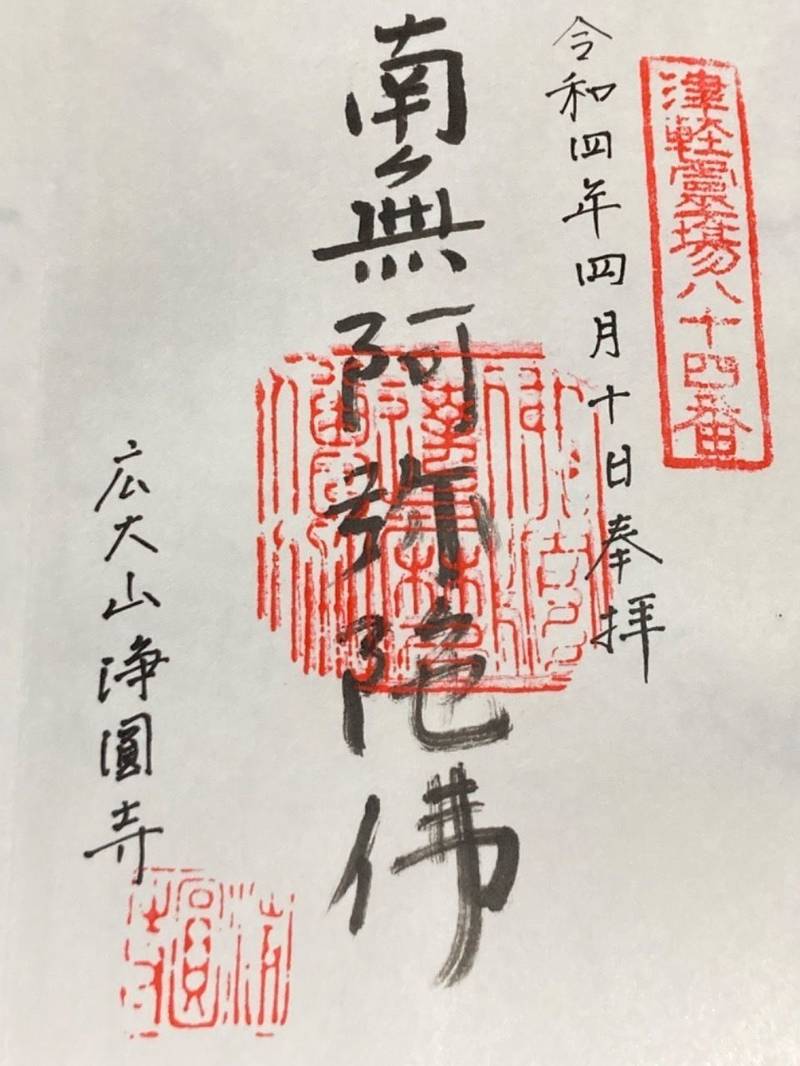 津軽霊場八十四番
令和四年四月十日奉拝
南無阿弥陀佛
広大山浄圓寺